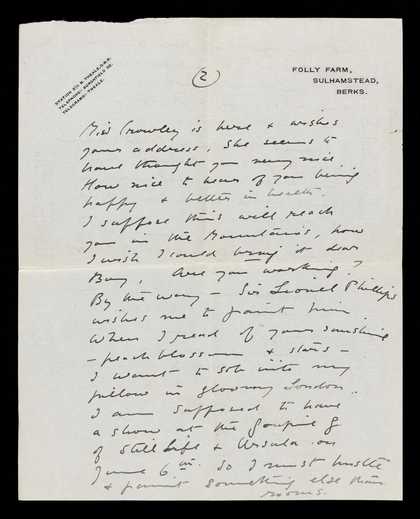 STATION 2½ M. THEALE, G.W.R.
TELEPHONE: BURGHFIELD 32.
TELEGRAMS: THEALE.
(2)
FOLLY FARM,
SULHAMSTEAD,
BERKS.
Miss Crowley is here & wishes
your address. She seems to
have thought you very nice
How nice to hear of you being
happy & better in health.
I suppose this will reach
you in the Mountains, how
I wish I could bring it dear
Boy. Are you working?
By the way – Sir Lionel Phillips
wishes me to paint him
When I read of your sunshine
– peach blossom & stars –
I want to sob into my
pillow in gloomy London.
I am supposed to have
a show at the Goupil G
of Still Life & Ursula on
June 6th. So I must hustle
& paint something else than
rooms.